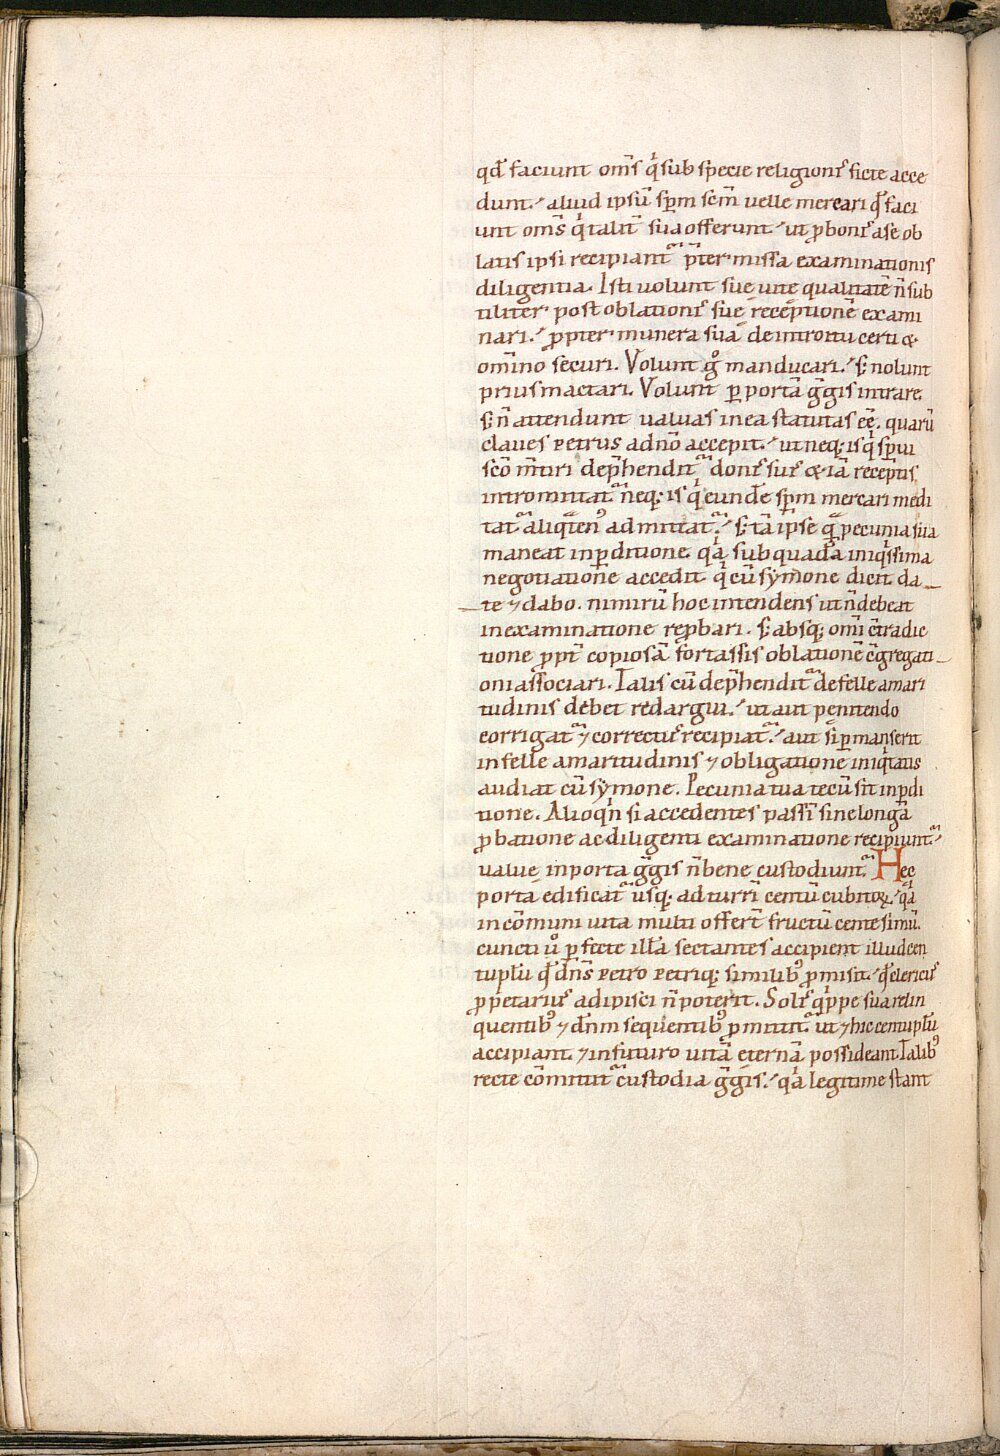 qđ faciunt om̄s q̇ sub specie religionis ficte acce
dunt. aliud ipsū sp̄m sc̄m uelle mercari qđ faci
unt om̄s q̇ talit̄ sua offerunt ut ꝓ bonis a se ob
latis ipsi recipiant᷑ p̄termissa examinationis
diligentia. Isti uolunt suę uite qualitatē n̄ sub
tiliter post oblationis suę receptionē exami
nari. ꝓpter munera sua de introitu certi &
omīno securi. Volunt g̊ manducari. s; nolunt
prius mactari. Volunt ꝑ portā ḡgis intrare
s; n̄ attendunt ualuas in ea statutas eē. quarū
claues petrus a dn̄o accepit. ut neq; is q̇ sp̄ui
sc̄o m̄tiri dep̄hendit᷑ donis suis & iā receptis
intromittat᷑ neq; is q̇ eundē sp̄m mercari medi
tat᷑ aliq̇ten᷒ admittat᷑. s; tā ip̄se quā pecunia sua
maneat in ꝑditione. q̇a sub quadā iniq̇ssima
negotiatione accedit q̇ cū symone dicit da
te ⁊ dabo. nimirū hoc intendens ut n̄ debeat
in examinatione rep̄bari. s; absq; om̄i c̄tradic
tione ꝓpt̄ copiosā fortassis oblationē c̄gregati
oni associari. Talis cū dep̄hendit᷑ de felle amari
tudinis debet redargui. ut aut penitendo
corrigat᷑ ⁊ correctus recipiat᷑. aut si ꝑmanserit
in felle amaritudinis ⁊ obligatione iniq̇tatis
audiat cū symone. Pecunia tua tecū sit in ꝑdi
tione. Alioq̇n si accedentes passī sine longa
ꝓbatione ac diligenti examinatione recipiunt᷑
value in porta ḡgis n̄ bene custodiunt᷑. Hec
porta edificat᷑ usq; ad turrī centū cubitoꝝ. q̇a
in cōmuni uita multi offerт̄ fructū centesimū.
cuncti u̇o ꝑfecte illā sectantes accipient illud cen
tuplū qđ dn̄s petro petriq; similib᷒ ꝓmisit. qđ clericus
ꝓp̄etarius adipisci n̄ poterit. Solis q̇ppe sua relin
quentib᷒ ⁊ dn̄m sequentib᷒ ꝓmittit᷑ ut ⁊ hic centuplū
accipiant ⁊ in futuro uitā eternā possideant. Talib᷒
recte cōmittit᷑ custodia ḡgis. q̇a legitime stant